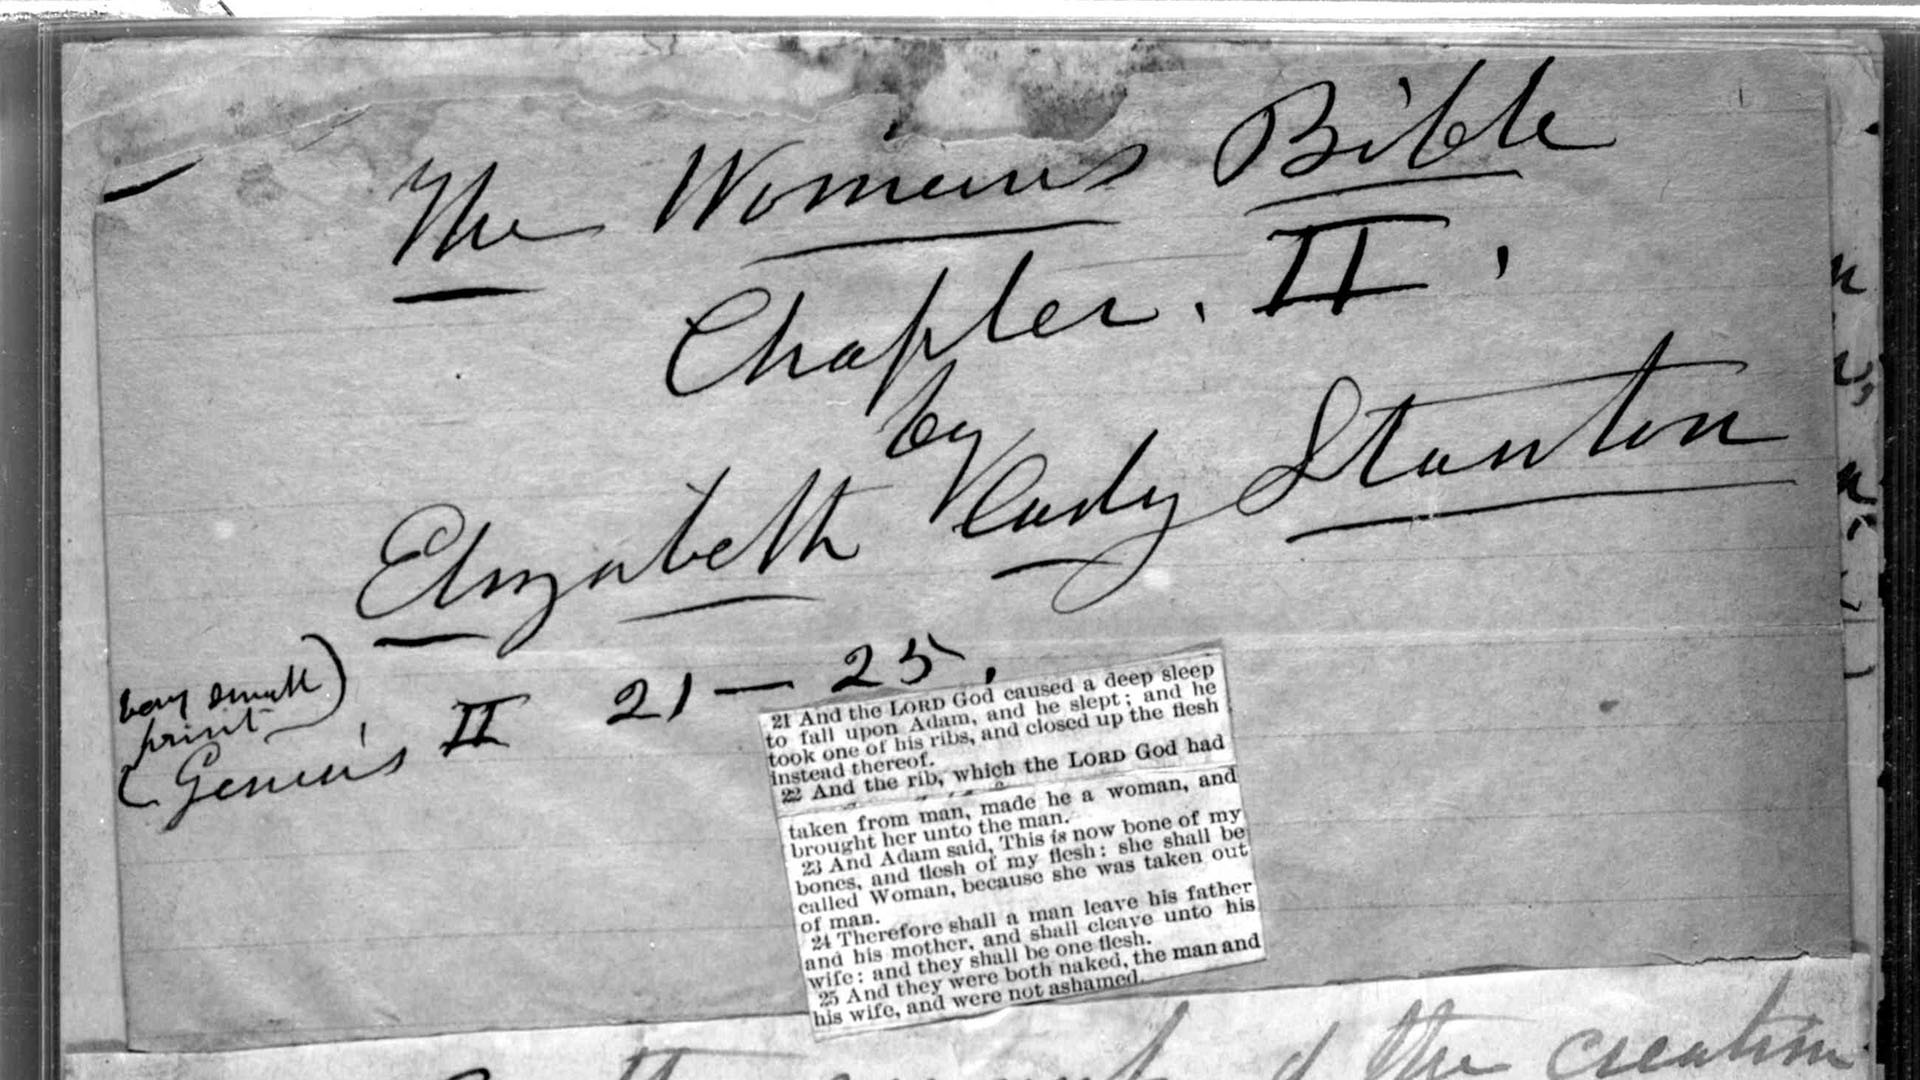 The Woman's Bible
Chapter. II.
by
Elizabeth Cady Stanton
very small
print
(Genesis II 21—25.
21 And the LORD God caused a deep sleep
to fall upon Adam, and he slept; and he
took one of his ribs, and closed up the flesh
instead thereof.
22 And the rib, which the LORD God had
taken from man, made he a woman, and
brought her unto the man.
23 And Adam said, This is now bone of my
bones, and flesh of my flesh: she shall be
called Woman, because she was taken out
of man.
24 Therefore shall a man leave his father
and his mother, and shall cleave unto his
wife: and they shall be one flesh.
25 And they were both naked, the man and
his wife, and were not ashamed.
the creation